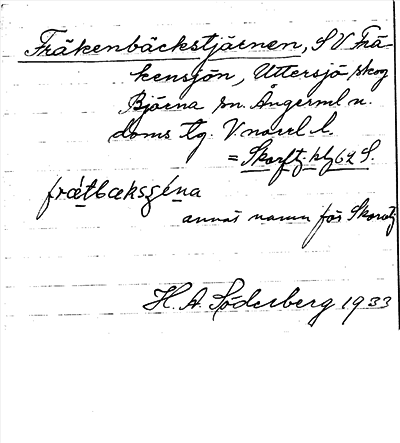 Fräkenbäckstjärnen, SV Frä-
kensjön, Uttersjö skog
Björna sn. Ångerml n.
doms tg. V.norrl l.
= Skorftj. blz 62 S.
frætbæksʒéna
annat namn för Skorvtj
H. A. Söderberg 1933